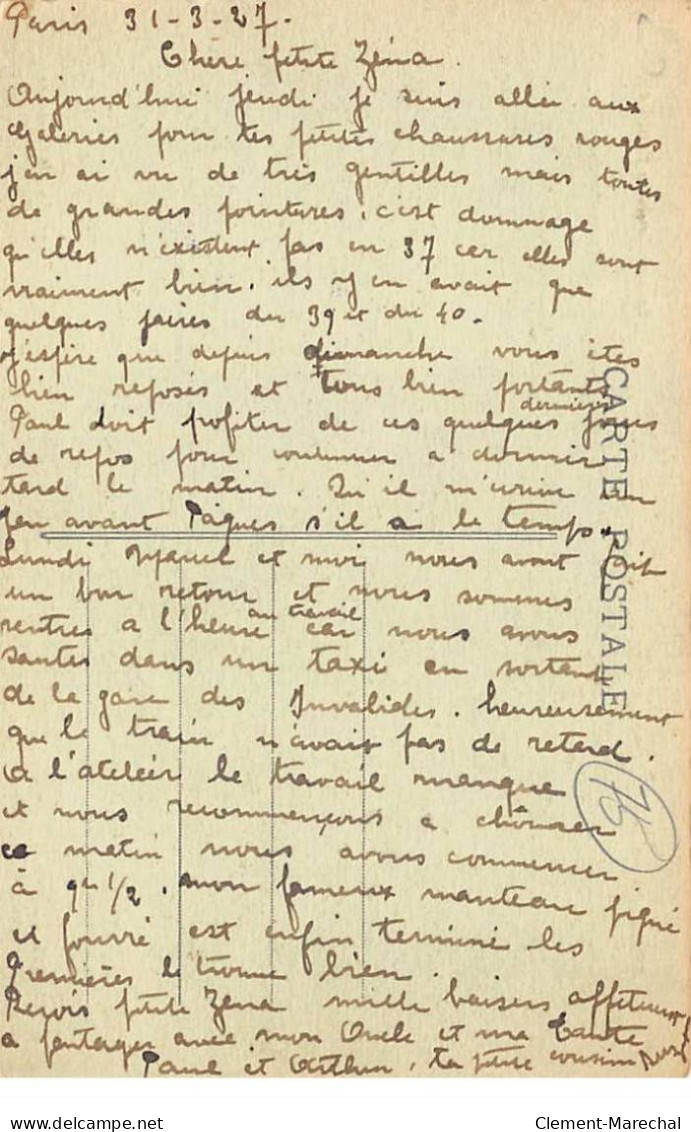 Paris 31-3-27.
Chère petite Zéna.
Aujourd'hui jeudi je suis allée aux
Galeries pour tes petites chaussures rouges
j'en ai vu de très gentilles mais toutes
de grandes pointures, c'est dommage
qu'elles n'existent pas en 37 car elles sont
vraiment bien. ils y en avait que
quelques paires du 39 et du 40.
j'espère que depuis dimanche vous êtes
bien reposés et tous bien portants
Paul doit profiter de ces quelques derniers jours
de repos pour continuer a dormir
tard le matin. Qu'il m'écrive un
peu avant Pâques s'il a le temps.
Lundi Marcel et moi nous avons fait
un bon retour et nous sommes
rentres a l'heure au travail car nous avons
sautés dans un taxi en sortant
de la gare des Invalides. heureusement
que le train n'avait pas de retard.
a l'atelier le travail manque
et nous recommençons a chômer
ce matin nous avons commencer
à 9h 1/2. mon fameux manteau piqué
et fourré est enfin terminé les
Premières le trouve bien.
Reçois petite Zéna mille baisers affectueux
a partager avec mon Oncle et ma Tante
Paul et Arthur. ta petite cousine
CARTE POSTALE
75
delcampe.net
Clement-Marechal